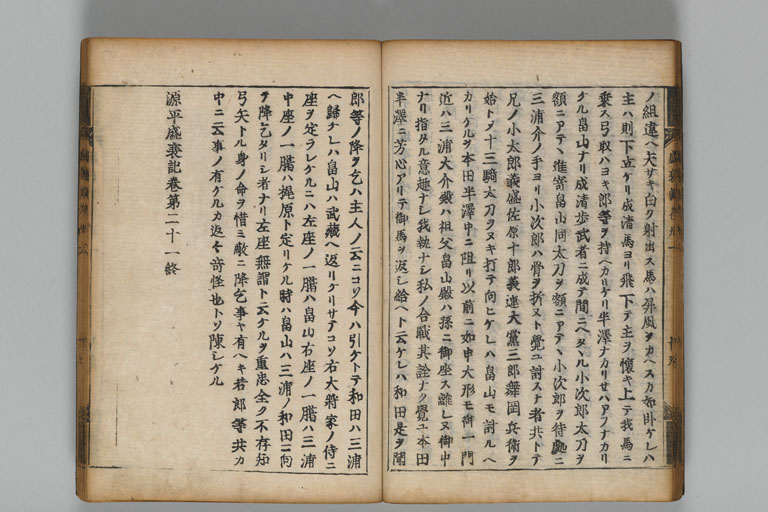 ノ組違ヘ矢サキ白ク射出ス馬ハ屏風ヲカヘスカ如卧ケレハ
主ハ則下立ケリ成清馬ヨリ飛下テ主ヲ懐キ上テ我馬ニ
乗ス弓取ハヨキ郎等ヲ持ヘカリケリ半澤ナカリせハアフナカリ
ケル畠山ナリ成清歩武者ニ成テ間ニヘタヽル小次郎太刀ヲ
額ニアテヽ進寄畠山同太刀ヲ額ニアテヽ小次郎ヲ待處ニ
三浦介ノ手ヨリ小次郎ハ骨ヲ折ヌト覺ユ討スナ者共トテ
兄ノ小太郎義盛佐原十郎義連大黨三郎舞岡兵衛ヲ
始トメ十三騎太刀ヲヌキ打テ向ヒケレハ畠山モ討ルヘ
カリケルヲ本田半澤中ニ阻リ以前ニ如申大形モ御一門
近ハ三浦大介殿ハ祖父畠山殿ハ孫ニ御座ス離レヌ御中
ナリ指タル意趣ナシ我執ナシ私ノ合戰其詮ナク覺ユ本田
半澤ニ芳心アリテ御馬ヲ返シ給ヘト云ケレハ和田是ヲ聞
郎等ノ降ヲ乞ハ主人ノ云ニコソ今ハ引ケトテ和田ハ三浦
ヘ歸ケレハ畠山ハ武藏ヘ返リケリサテコソ右大將家ノ侍ニ
座ヲ定ラレケルニハ左座ノ一臈ハ畠山右座ノ一臈ハ三浦
中座ノ一臈ハ梶原ト定リケル時ハ畠山ハ三浦ノ和田ニ向
テ降乞タリシ者ナリ左座無謂ト云ケルヲ重忠全ク不存知
弓矢トル身ノ命ヲ惜ミ敵ニ降乞事ヤ有ヘキ若郎等共カ
中ニ云事ノ有ケルカ返々奇怪也トソ陳シケル
源平盛衰記巻第二十一終